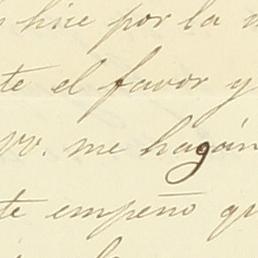 hice por la
te el favor y
VV. me hagan
te empeño qu